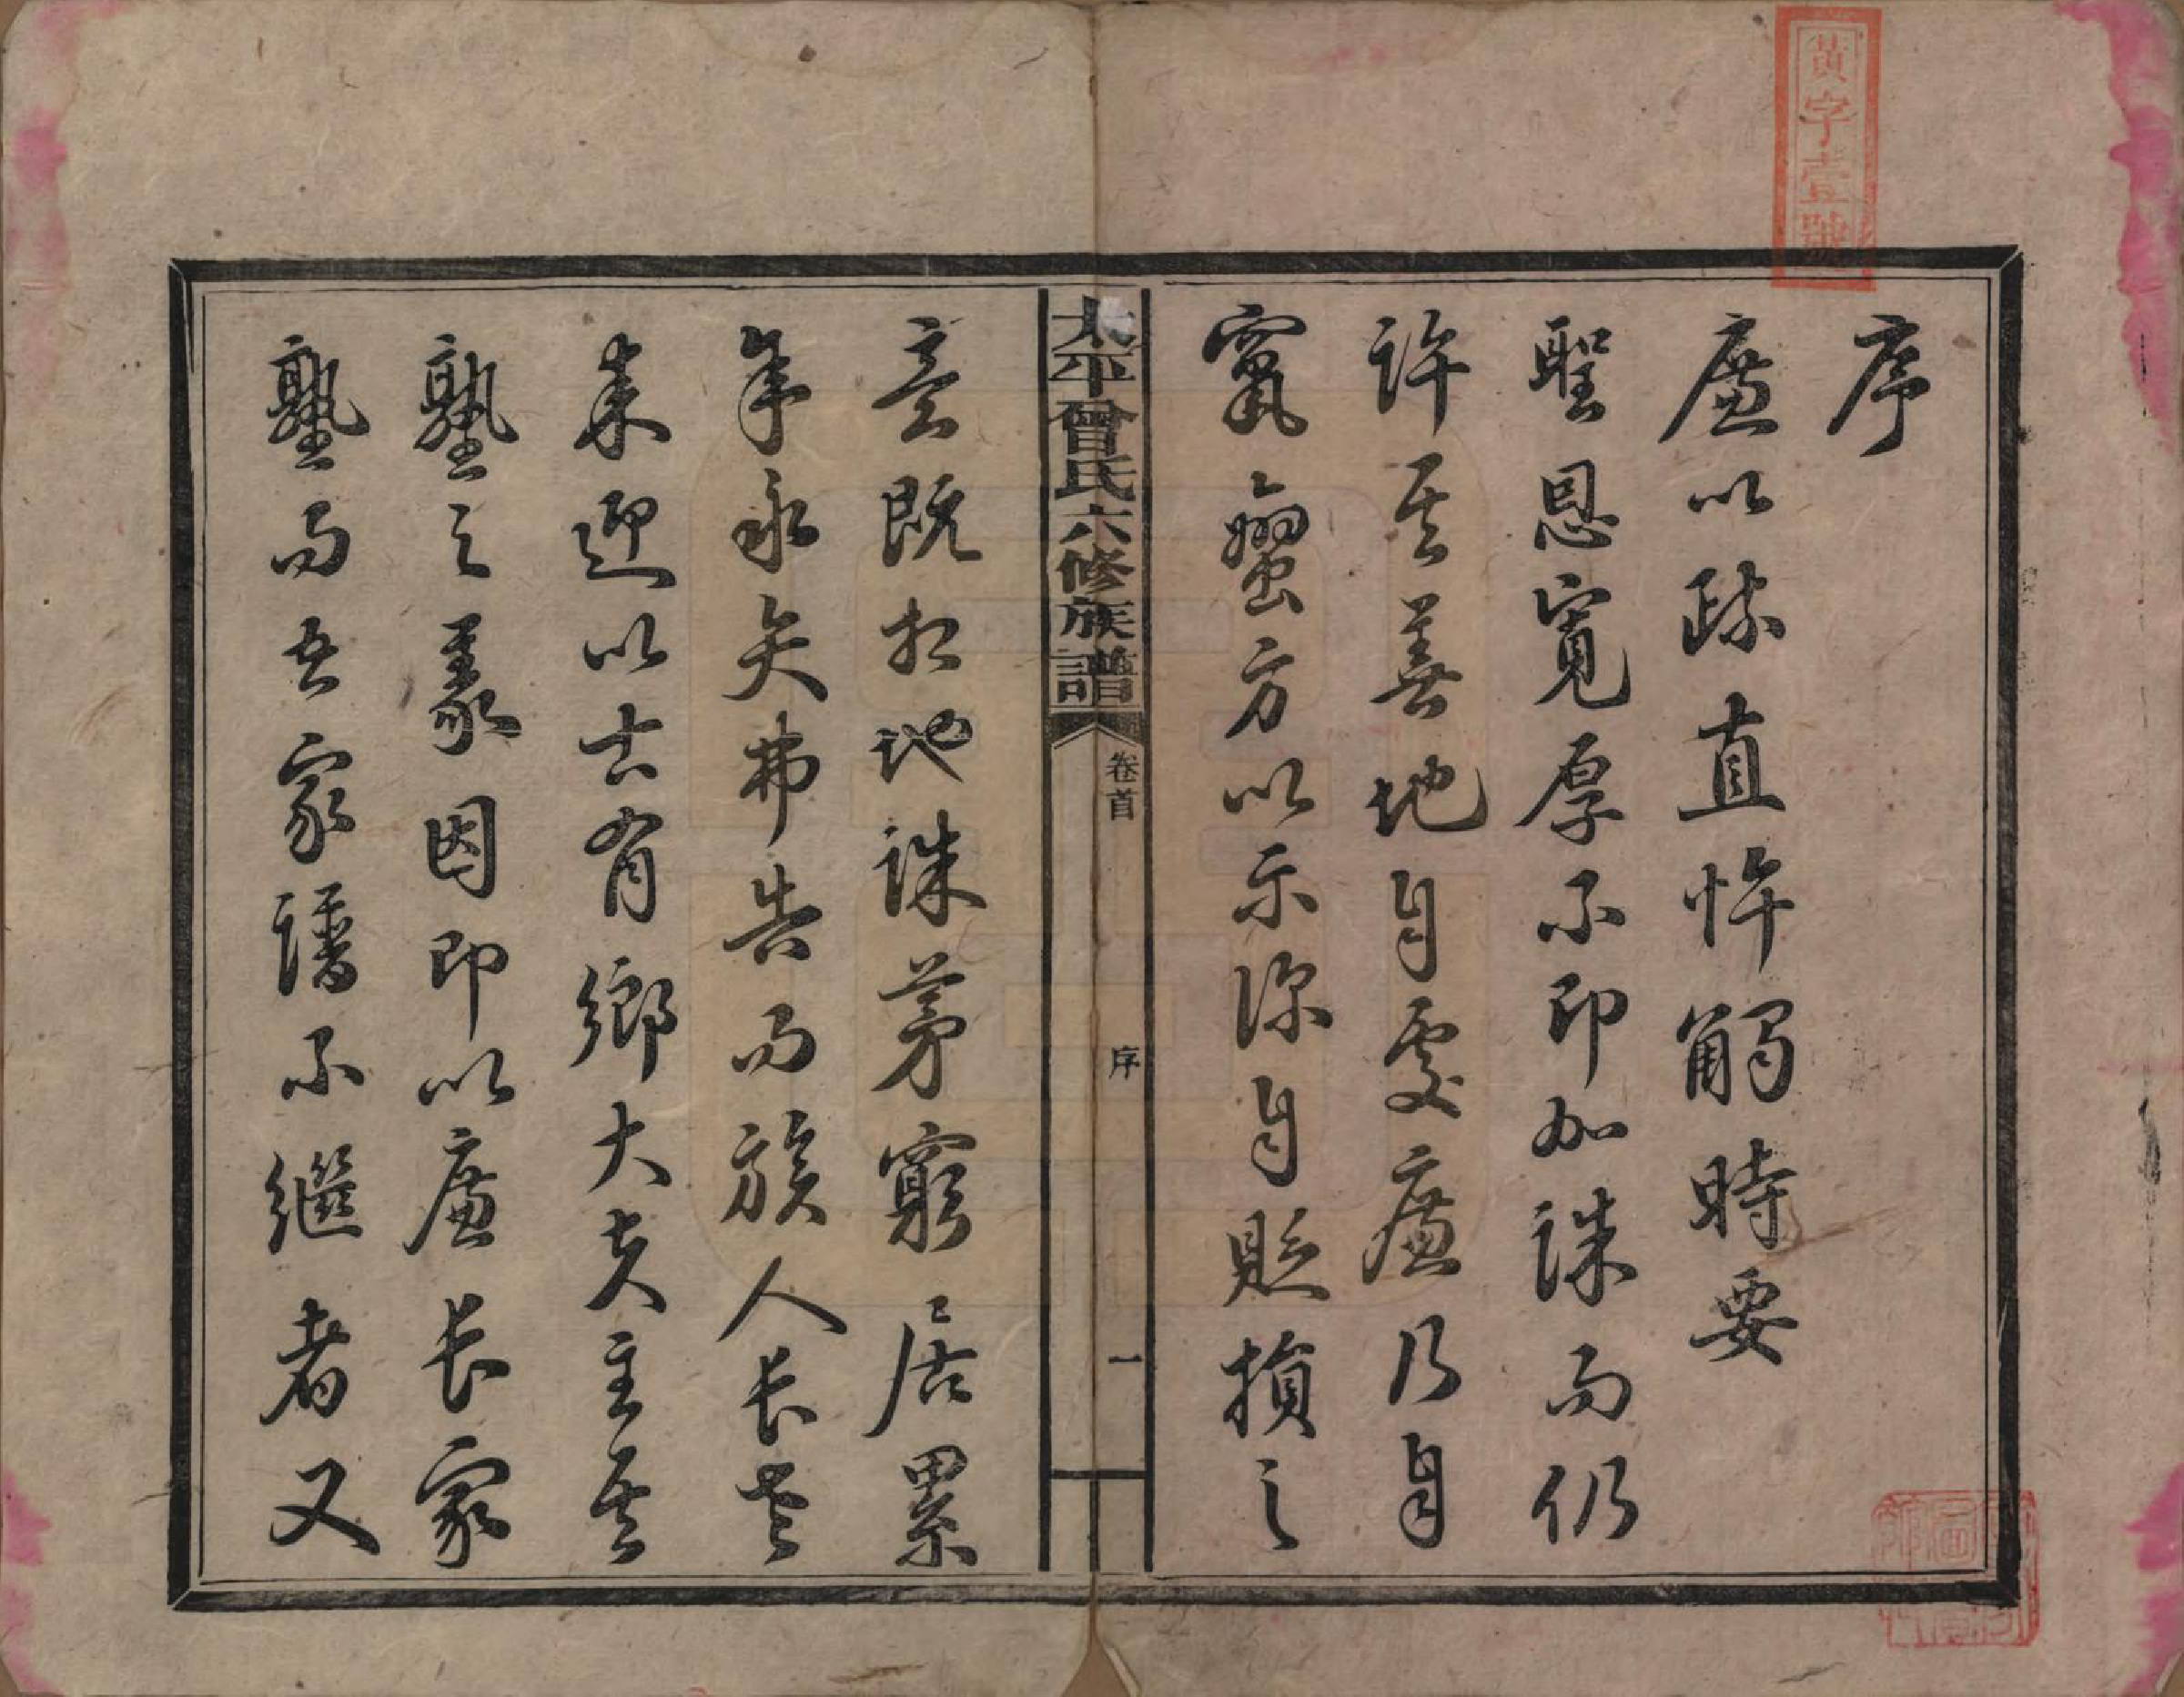 黃字壹號
序
廉以疎直忤觸時要
聖恩寬厚不即加誅而仍
許其善地自處廉乃自
竄蠻方以示深自貶損之
太平曾氏六修族譜
卷首
序
一
意既扣地誅茅窮居累
年永矢弗告而族人長老
來迎以古有鄉大夫主其
塾之義因即以廉長家
塾而吾家譜不繼者又